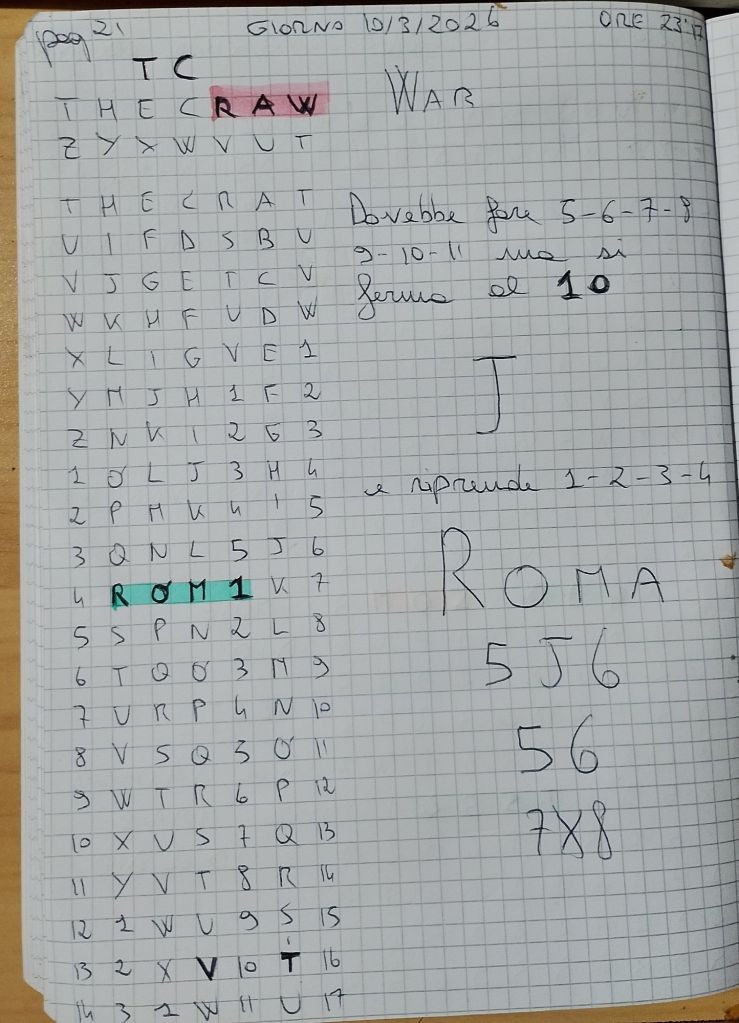 pag 21 GIORNO 10/3/2026 ORE 23:17
T C
T H E C R A W WAR
Z Y X W V U T
T H E C R A T Dovebbe fare 5-6-7-8
U I F D S B U 9-10-11 ma si
V J G E T C V ferma al 10
W K H F U D W
X L I G V E 1
Y M J H 1 F 2 J
Z N K I 2 G 3
1 O L J 3 H 4 e riprende 1-2-3-4
2 P M K 4 I 5
3 Q N L 5 J 6
4 R O M 1 K 7 ROMA
5 S P N 2 L 8
6 T Q O 3 M 9 5J6
7 U R P 4 N 10
8 V S Q 5 O 11 56
9 W T R 6 P 12
10 X U S 7 Q 13 7X8
11 Y V T 8 R 14
12 1 W U 9 S 15
13 2 X V 10 T 16
14 3 1 W 11 U 17